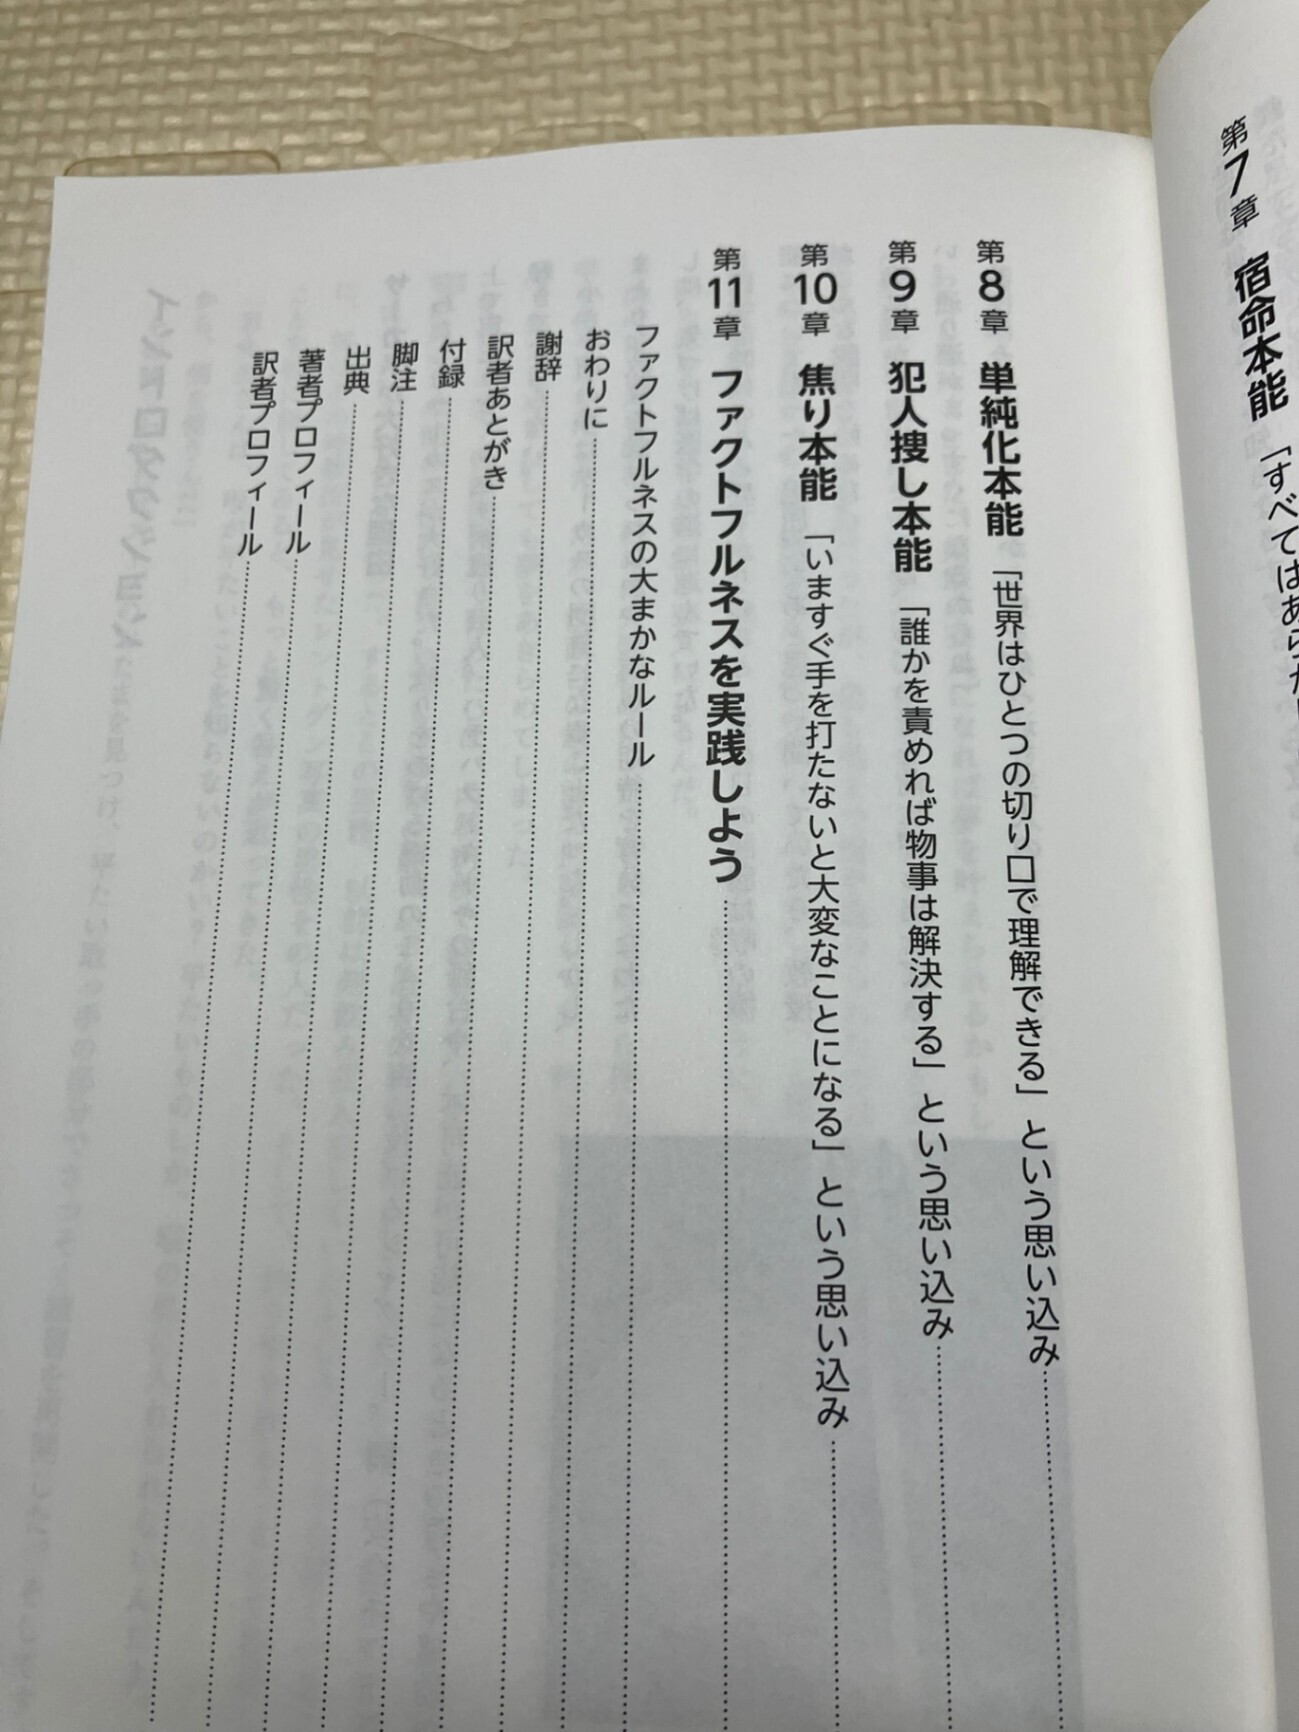 第7章 宿命本能 「すべてはあらか
第8章 単純化本能 「世界はひとつの切り口で理解できる」という思い込み
第9章 犯人捜し本能 「誰かを責めれば物事は解決する」という思い込み
第10章 焦り本能 「いますぐ手を打たないと大変なことになる」という思い込み
第11章 ファクトフルネスを実践しよう
ファクトフルネスの大まかなルール
おわりに
謝辞
訳者あとがき
付録
脚注
出典
著者プロフィール
訳者プロフィール